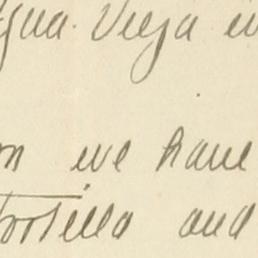 Agua Vieja
we have
Tortilla and